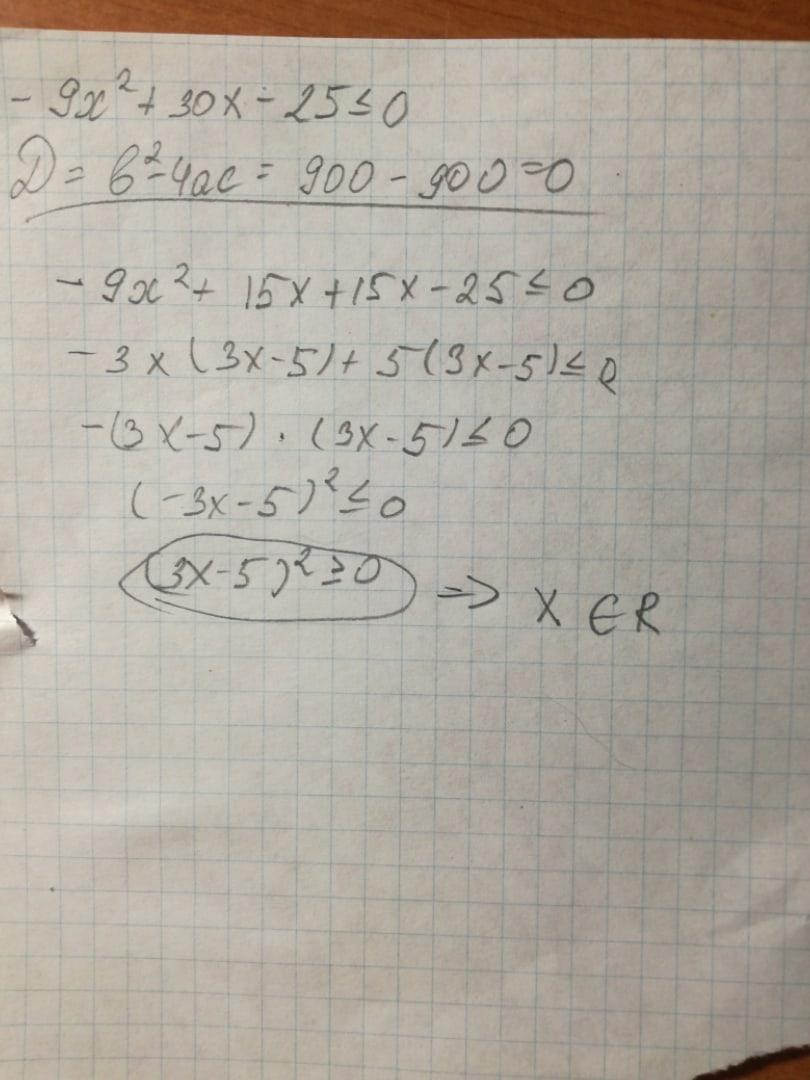 - 9x² + 30x - 25 ≤ 0
D = b² - 4ac = 900 - 900 = 0
- 9x² + 15x + 15x - 25 ≤ 0
- 3x (3x - 5) + 5 (3x - 5) ≤ 0
- (3x - 5) · (3x - 5) ≤ 0
(-3x - 5)² ≤ 0
(3x - 5)² ≥ 0 => x ∈ R